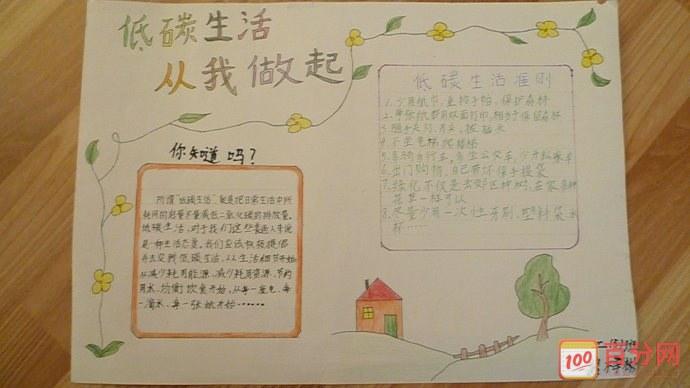 低碳生活
从我做起
你知道吗?
所谓"低碳生活",就是把日常生活中所
耗用的能量尽量减低二氧化碳的排放量。
低碳生活,对于我们这些普通人来说
是一种生活态度。我们应该积极提倡
并去实践低碳生活,从生活细节开始
从减少耗用能源、减少耗用资源、节约
用水、均衡饮食开始,从每一度电、每
一滴水、每一张纸开始……
低碳生活准则
1.少用纸巾,重拾手帕,保护森林
2.每张纸都用双面打印,相当于保留森林
3.随手关灯、开关、拔插头
4.不坐电梯,爬楼梯
5.多骑自行车,多坐公交车,少开私家车
6.出门购物,自己带环保手提袋
7.绿化不仅是去郊区种树,在家多种
花草一样可以
8.尽量少用一次性牙刷、塑料袋、水
杯……
100
百分网